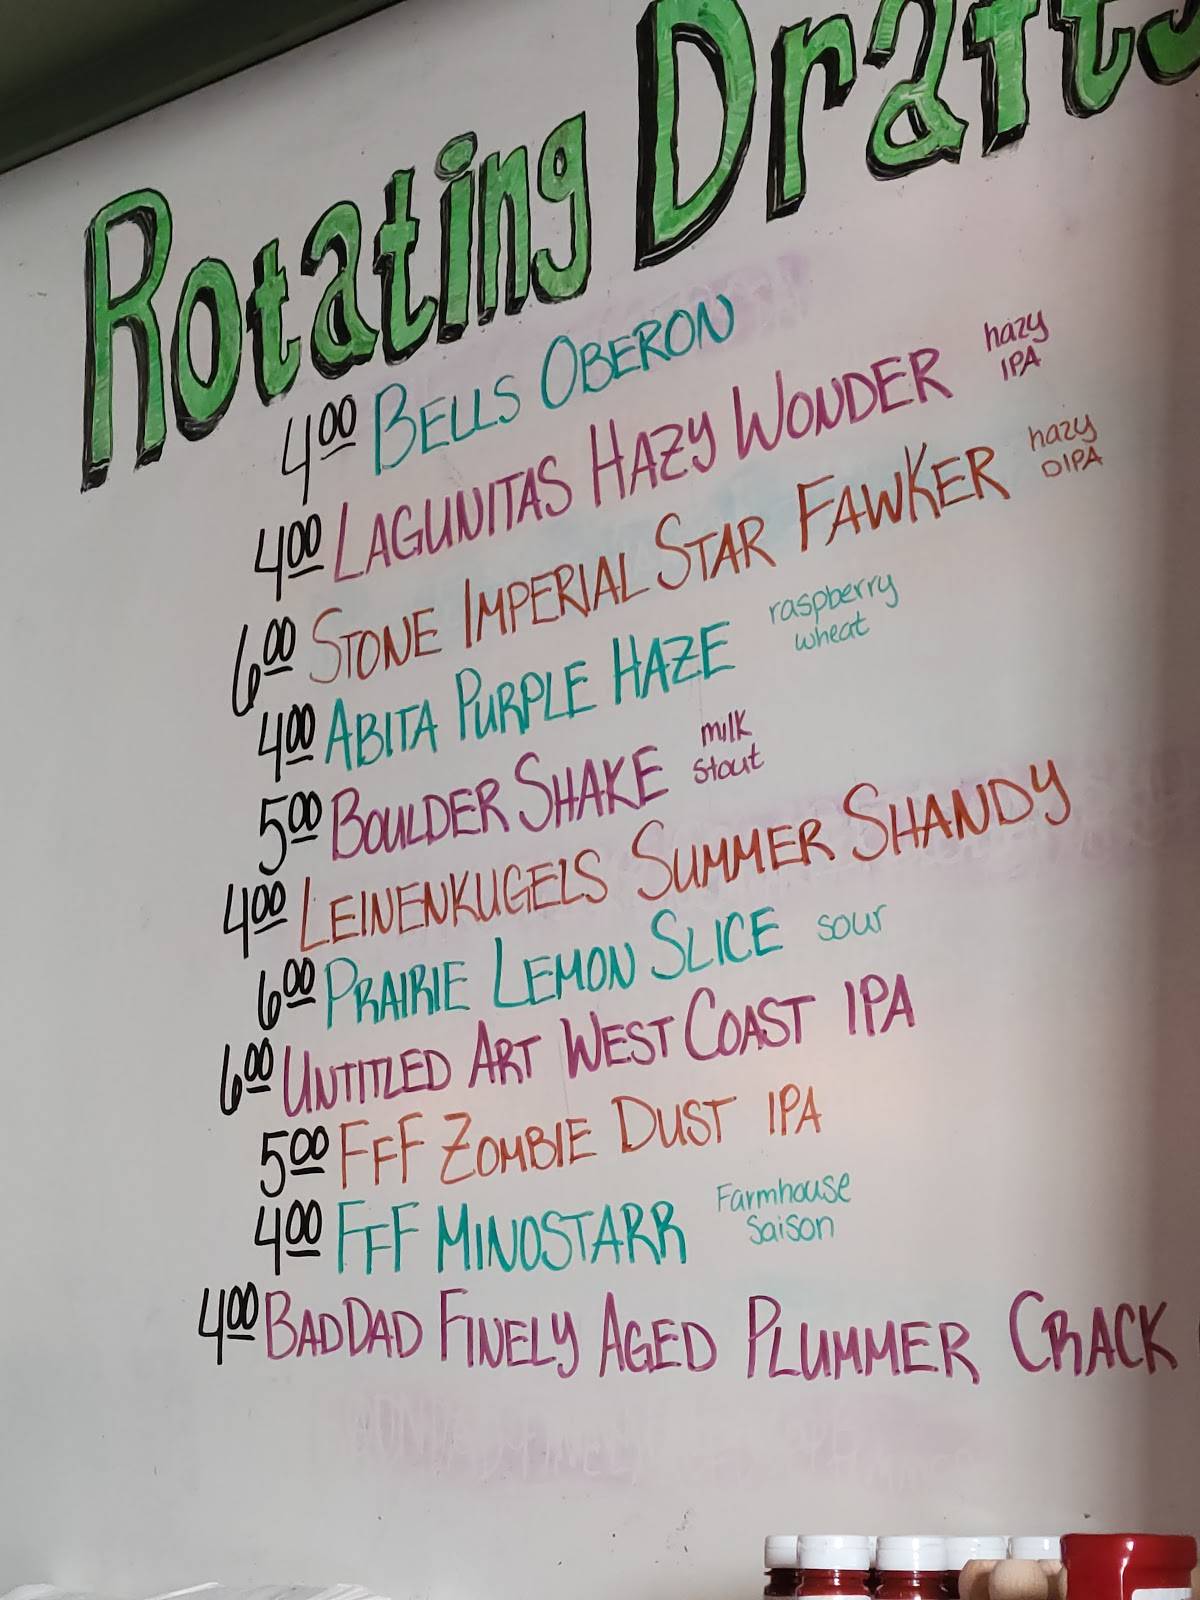 Rotating Drafts
4.00 BELLS OBERON
4.00 LAGUNITAS HAZY WONDER hazy IPA
6.00 STONE IMPERIAL STAR FAWKER hazy DIPA
4.00 ABITA PURPLE HAZE raspberry wheat
5.00 BOULDER SHAKE milk stout
4.00 LEINENKUGELS SUMMER SHANDY
6.00 PRAIRIE LEMON SLICE sour
6.00 UNTITLED ART WEST COAST IPA
5.00 FFF ZOMBIE DUST IPA
4.00 FFF MINOSTARR Farmhouse Saison
4.00 BAD DAD FINELY AGED PLUMMER CRACK